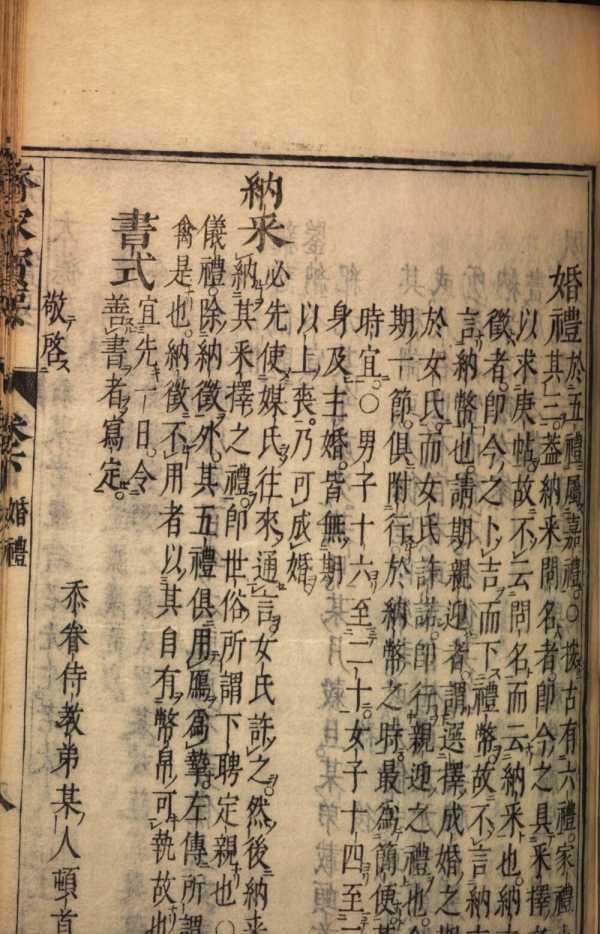 婚禮於五禮屬嘉禮。○按古有六禮。家禮
其三。蓋納采問名者。即今之具采擇
以求庚帖。故不云問名而云納采也。納
徵者。即今之卜吉而下禮幣。故不言納
言納幣也。請期親迎者。謂選擇成婚之期
於女氏。而女氏許諾。即行親迎之禮也。
期一節。俱附行於納幣之時。最爲簡便。其
時宜。○男子十六至二十。女子十四至
身及主婚皆無期
以上喪。乃可成婚
納采必先使媒氏往來通言。女氏許之。然後納采
納其采擇之禮。即世俗所謂下聘定親也。○
儀禮。除納徵外。其五禮俱用鴈爲摯。左傳所謂
禽是也。納徵不用者。以其自有幣帛可執故也
書式宜先一日。令
善書者寫定。
敬啓
忝眷侍教弟某人頓首
齊家寶要 卷下 婚禮 八